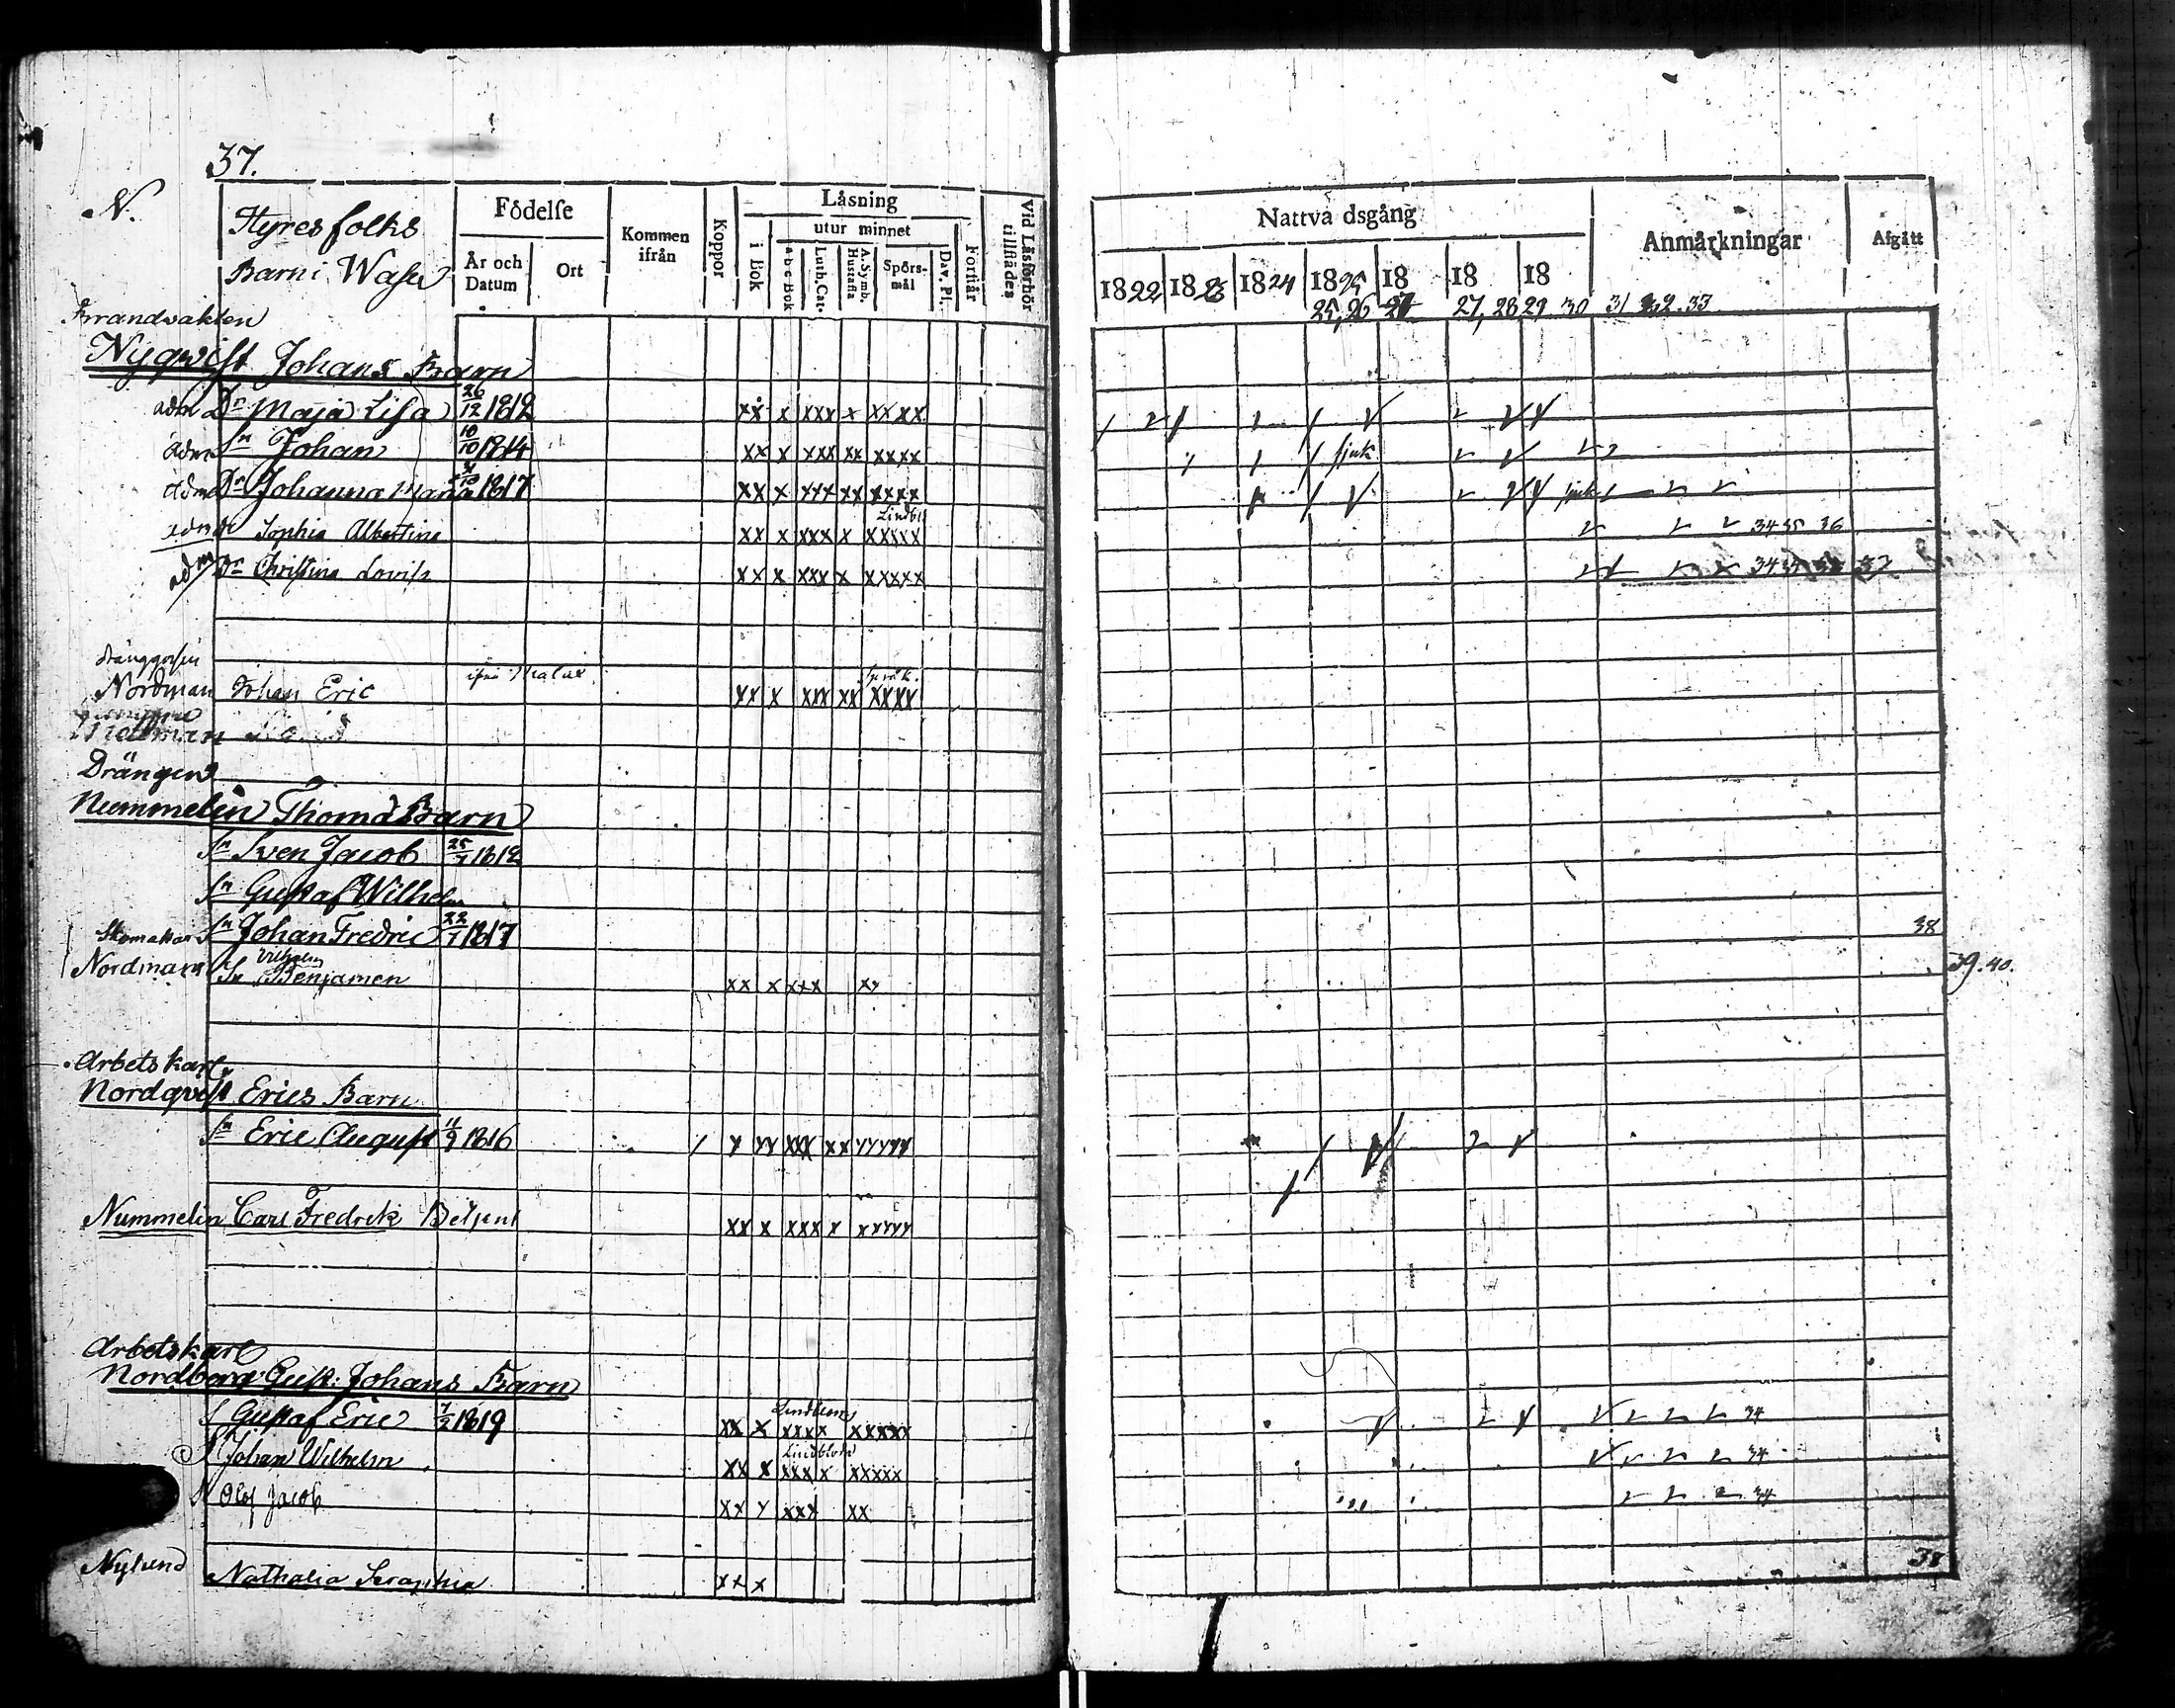 37.
N.
Hyresfolks
Barn i Wasa
Födelse
År och Datum
Ort
Kommen ifrån
Koppor
Läsning
i Bok
utur minnet
a b c Bok
Luth. Cat.
A. Symb. Hustafla
Spörs-mål
Dav. Ps.
Förstår
Vid Läsförhör tillstädes
Nattvardsgång
1822 1823 1824 1825 18 18 18
25, 26 27, 28 29 30 31 32. 33
Anmärkningar
Afgått
Brandvakten
Nyqwist Johans Barn
adm Dr Maja Lisa 26/12 1812 xx x xxx x xx xx
adm Sn Johan 10/10 1814 xx x xxx xx xxxx sjuk
adm Dr Johanna Maria 1817 xx x xxx xx xxxx sjuk
Lindbl
adm Dr Sophia Albertina xx x xxx x xxxxx 34 35 36
adm Dr Christina Lovisa xx x xxx x xxxxx 34 35
Nordman Johan Eric ifrån Malax xx x xxx xx xxxx
Drängen
Nummelin Thomas Barn
Sn Sven Jacob 25/7 1812
Sn Gustaf Wilhelm
Sn Johan Fredric 22/7 1817 38
Skomakar
Nordman Sn Vilhelm Benjamen xx x xxx xx 39. 40.
Arbetskarl
Nordqvist Erics Barn
Sn Eric August 11/9 1816 x xx xxx xx xxxxx
Nummelin Carl Fredrik Betjent xx x xxx x xxxxx
Arbetskarl
Nordberg Gust: Johans Barn
S Gustaf Eric 7/2 1819 xx x xxxx xxxxx 34
Lindblom
S Johan Wilhelm xx x xxx x xxxxx 34
S Olof Jacob xx x xxx xx 34
Nylund Nathalia Seraphia xx x 38